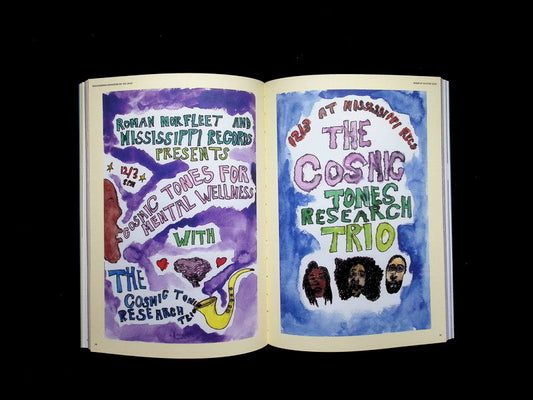 ROMAN NORFLEET AND
MISSISSIPPI RECORDS
PRESENTS
12/3
COSMIC TONES FOR
MENTAL WELLNESS
WITH
THE
COSMIC TONES
RESEARCH
12/3 AT MISSISSIPPI RECS
THE
COSMIC
TONES
RESEARCH
TRIO